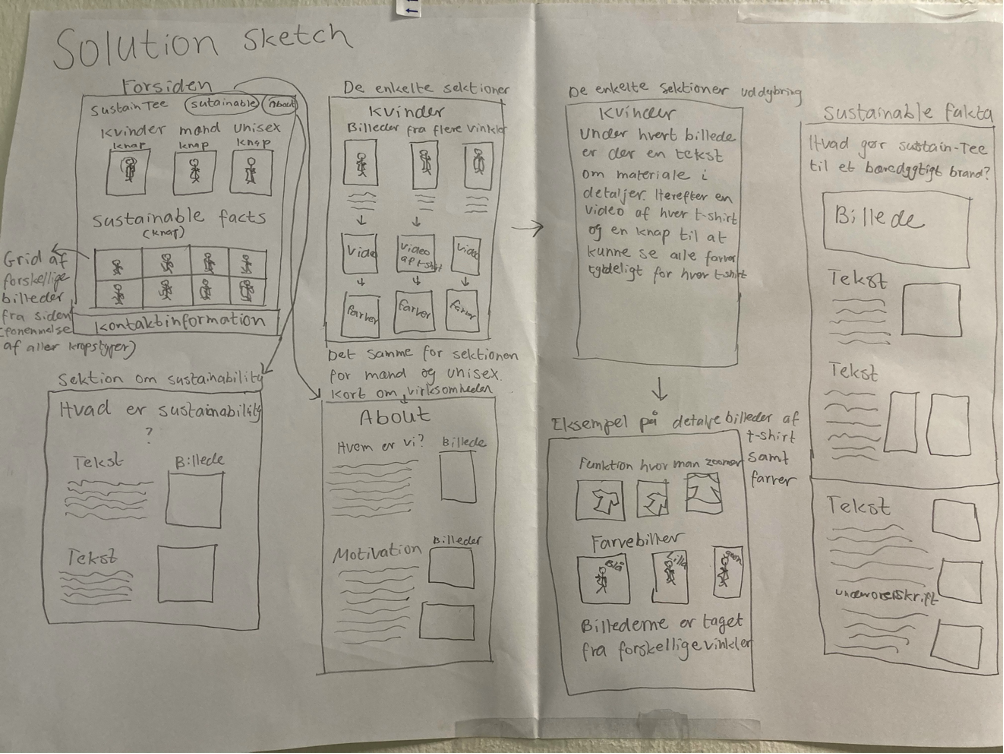 Solution Sketch
Forsiden
SustainTee sutainable About
Kvinder mand unisex
knap knap knap
Sustainable facts
(knap)
Grid af
forskellige
billeder
fra siden
(fornemmelse
af aller kropstyper)
Kontaktinformation
Sektion om sustainability
Hvad er sustainability
?
Tekst Billede
Tekst
De enkelte sektioner
Kvinder
Billeder fra flere vinkler
Video video af t-shirt video
farver farver farver
Det samme for sektionen
for mand og unisex.
Kort om virksomheden
About
Hvem er vi? Billede
Motivation Billeder
De enkelte sektioner uddybning
Kvinder
Under hvert billede
er der en tekst
om materiale i
detaljer. Herefter en
video af hver t-shirt
og en knap til at
kunne se alle farver
tydeligt for hver t-shirt
Eksempel på detalje billeder af
t-shirt
samt
farver
Funktion hvor man zoomer
Farvebilleder
Blå Lilla grøn
Billederne er taget
fra forskellige vinkler
Sustainable fakta
Hvad gør sustain-Tee
til et bæredygtigt brand?
Billede
Tekst
Tekst
Tekst
underoverskrift